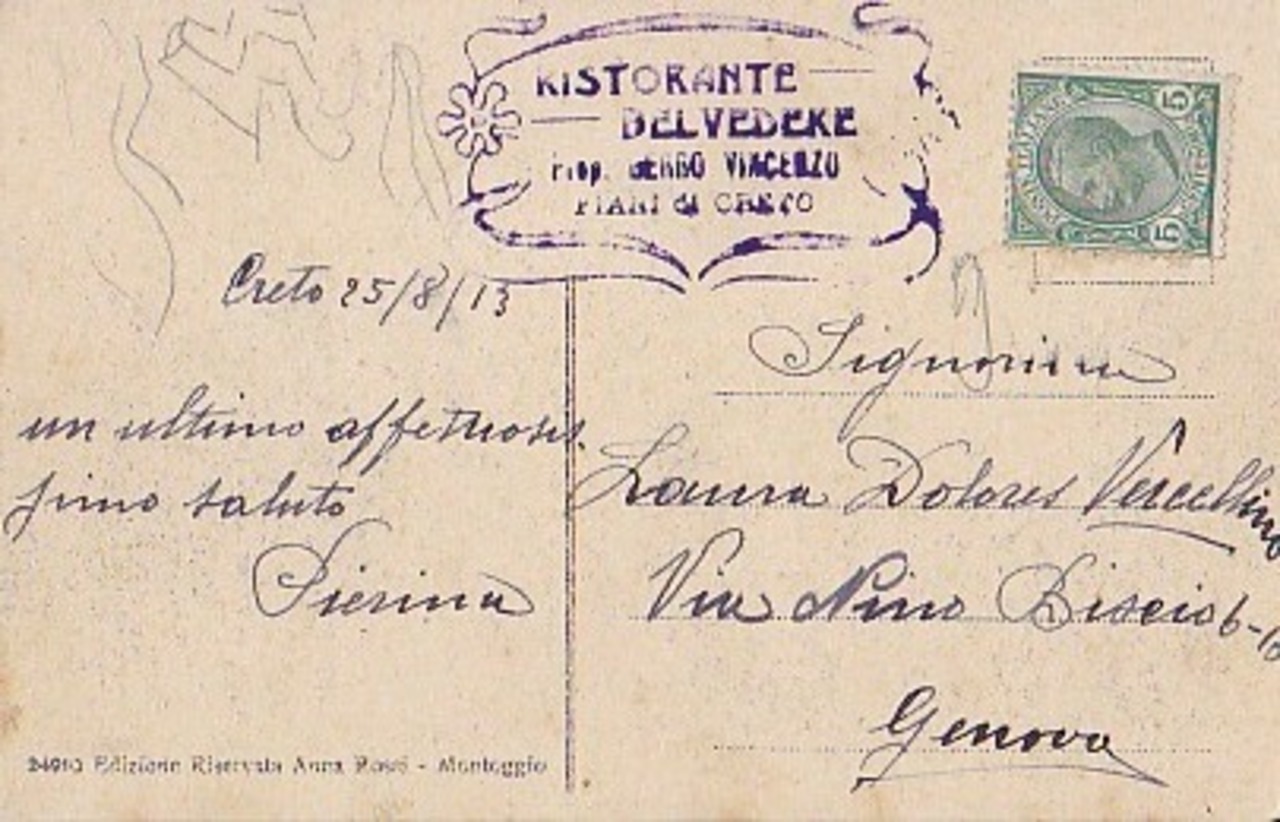 RISTORANTE
BELVEDERE
Prop. VINCENZO
PIANI di CRETO
5 5
Creto 25/8/13
un ultimo affettuosis.
simo saluto
Pierina
Signorina
Laura Dolores Vercellino
Via Nino Bixio 6-
Genova
24910 Edizione Riservata Anna Rossi - Montoggio